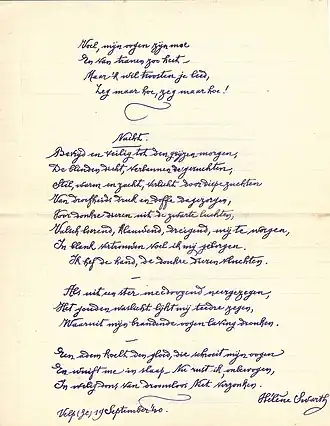 Voel, mijn oogen zijn moe
En van tranen zoo heet –
Maar 'k wil troosten je leed,
Zeg maar hoe, zeg maar hoe!
Nacht.
Bevrijd en veilig tot den grijzen morgen,
De blinden dicht, verbannen de geruchten,
Stil, warm en zacht, verlicht door diepe zuchten
Van droefheids druk en doffe dagezorgen,
Voor donkre dieren uit de zwarte luchten,
Valsch loerend, klauwend, dreigend, mij te worgen,
In blank vertrouwen voel ik mij geborgen.
Ik hef de hand, de donkre dieren vluchten.
–
Als uit een ster meedoogend neergezegen,
Het gouden waslicht lijkt mij teedre zegen,
Waaruit mijn brandende oogen laving dronken.
–
Een adem koelt den gloed, die schroeit mijn oogen
En wuift me in slaap. Nu rust ik, onbewogen,
In welig dons van droomloos Niet verzonken.
Hélène Swarth
Velp (G.) 19 September '20.